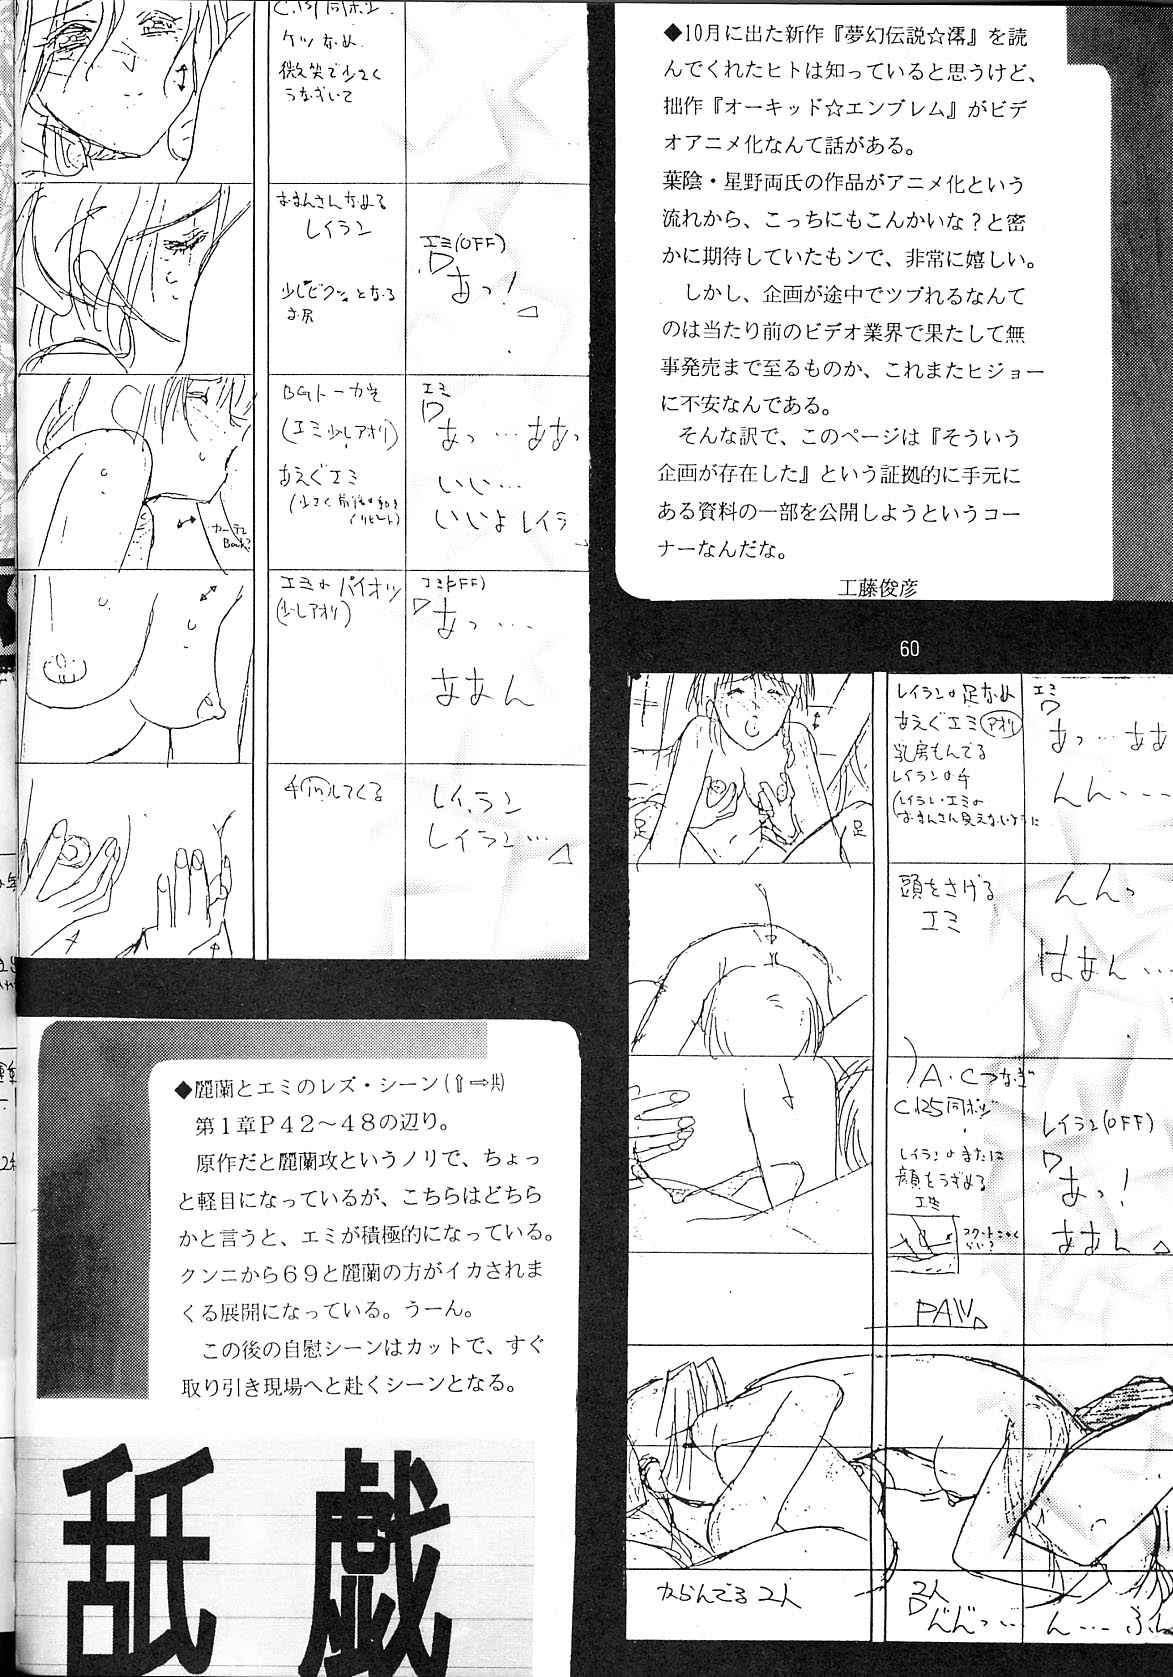 ◆10月に出た新作『夢幻伝説☆澪』を読
んでくれたヒトは知っていると思うけど、
拙作『オーキッド☆エンブレム』がビデ
オアニメ化なんて話がある。
葉陰・星野両氏の作品がアニメ化という
流れから、こっちにもこんかいな？と密
かに期待していたもンで、非常に嬉しい。
しかし、企画が途中でツブれるなんて
のは当たり前のビデオ業界で果たして無
事発売まで至るものか、これまたヒジョー
に不安なんである。
そんな訳で、このページは『そういう
企画が存在した』という証拠的に手元に
ある資料の一部を公開しようというコー
ナーなんだな。
工藤俊彦
60
微笑で少さく
うなずいて
レイラン
少しビクッとなる
お尻
エミ(OFF)
あっ！
(エミ少しアオリ)
あえぐエミ
エミ
あっ…ああっ
いい…
いいよレイラ
(少しアオリ)
あっ…
ああん
手inしてくる
レイラン
レイラン…
レイランの足なめ
あえぐエミ アオリ
乳房もんでる
レイランの手
足
足
エミ
あっ…ああ
んん…
頭をさげる
エミ
んんっ
はああん…
A・Cつなぎ
レイランのまたに
顔をうずめる
エミ
レイラン(OFF)
あっ！
ああん
PAN
からんでる2人
2人
んんっ…
ん…ふん
◆麗蘭とエミのレズ・シーン(⇧⇨共)
第１章Ｐ４２～４８の辺り。
原作だと麗蘭攻というノリで、ちょっ
と軽目になっているが、こちらはどちら
かと言うと、エミが積極的になっている。
クンニから６９と麗蘭の方がイカされま
くる展開になっている。うーん。
この後の自慰シーンはカットで、すぐ
取り引き現場へと赴くシーンとなる。
舐戯